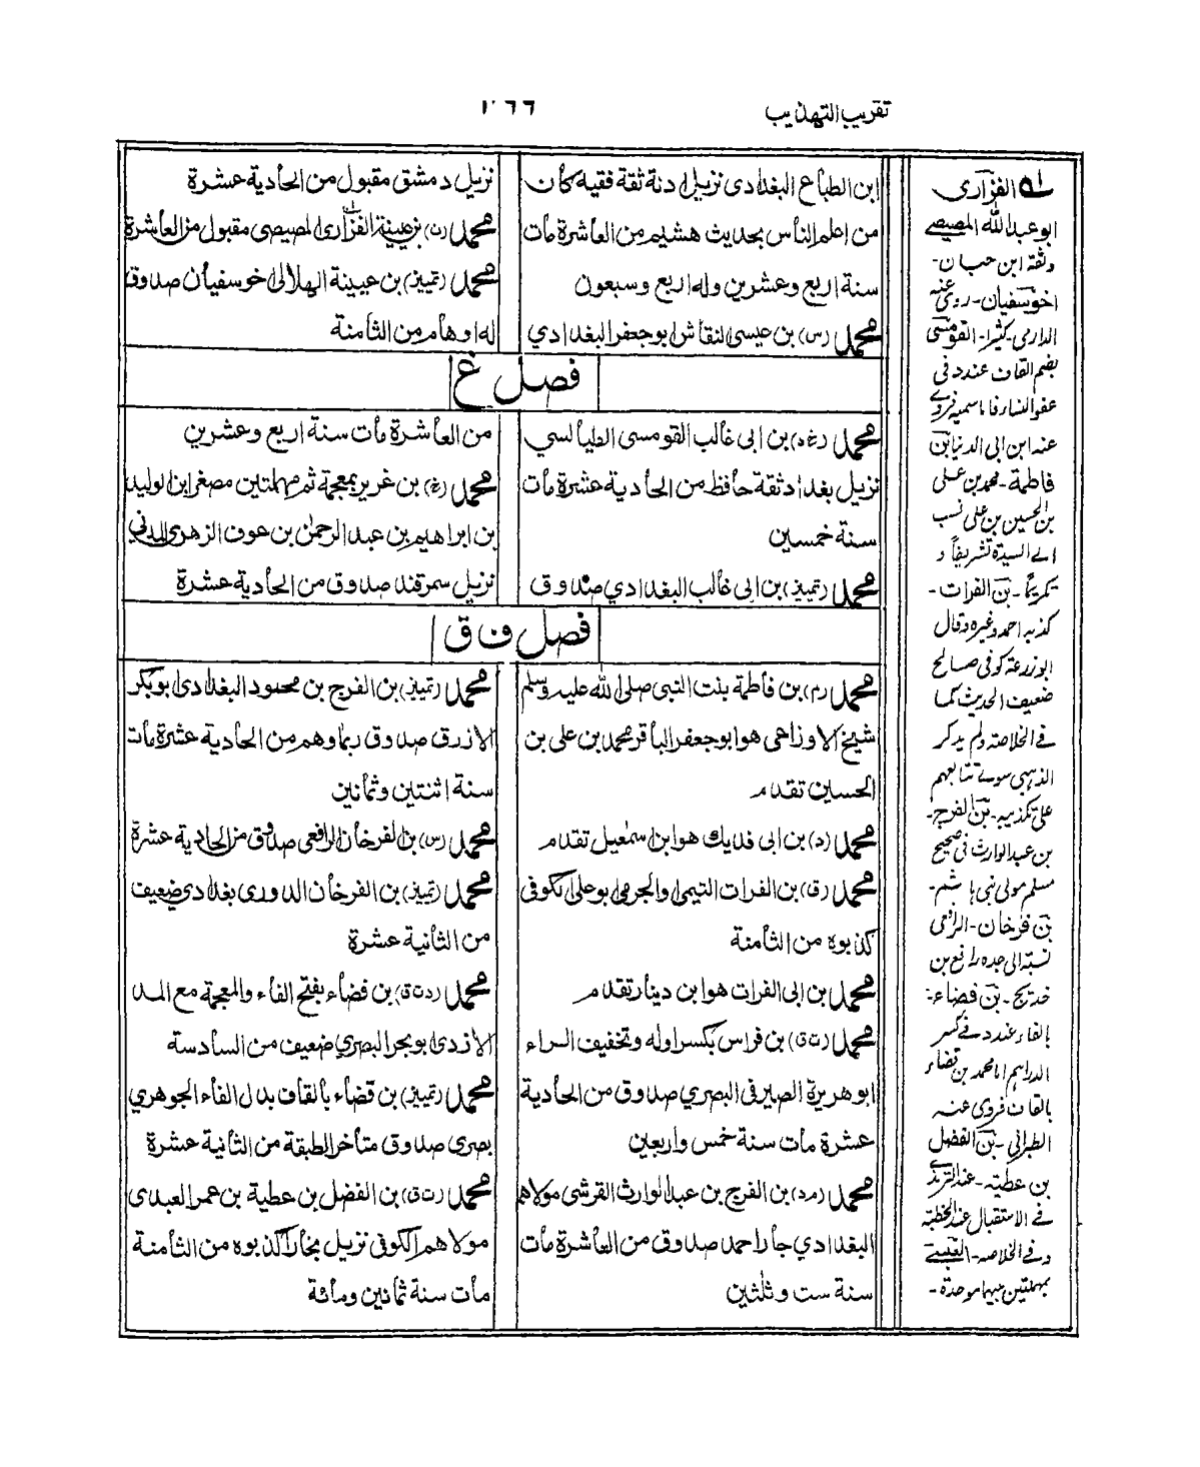 تقريب التهذيب
٣٦٦
ابن الطباع البغدادى نزيل اذنة ثقة فقيه كان
من اعلم الناس بحديث هشيم من العاشرة مات
سنة اربع وعشرين وله اربع وسبعون
محمد (س) بن عيسى النقاش ابوجعفر البغدادي
نزيل دمشق مقبول من الحادية عشرة
محمد (ن) بن عيينة الفزارى المصيصى مقبول من العاشرة
محمد (تمييز) بن عيينة الهلالى اخوسفيان صدوق
له اوهام من الثامنة
فصل غ
محمد بن ابى غالب القومسى الطيالسي
نزيل بغداد ثقة حافظ من الحادية عشرة مات
سنة خمسين
محمد (تمييز) بن ابى غالب البغدادي صدوق
من العاشرة مات سنة اربع وعشرين
محمد (غ) بن غرير بمعجمة ثم مهملتين مصغر ابن الوليد
بن ابراهيم بن عبد الرحمن بن عوف الزهرى المدني
نزيل سمرقند صدوق من الحادية عشرة
فصل ف ق
محمد (م) بن فاطمة بنت النبى صلى الله عليه وسلم
شيخ الاوزاعى هو ابوجعفر الباقر محمد بن على بن
الحسين تقدم
محمد (د) بن ابى فديك هو ابن اسمعيل تقدم
محمد (ق) بن الفرات التيمى او الجرمى ابوعلى الكوفى
كذبوه من الثامنة
محمد بن ابى الفرات هو ابن دينار تقدم
محمد (ت ق) بن فراس بكسر اوله وتخفيف الراء
ابوهريرة الصيرفى البصري صدوق من الحادية
عشرة مات سنة خمس واربعين
محمد (مد) بن الفرج بن عبد الوارث القرشى مولاهم
البغدادي جار احمد صدوق من العاشرة مات
سنة ست وثلثين
محمد (تمييز) بن الفرج بن محمود البغدادى ابوبكر
الازرق صدوق ربما وهم من الحادية عشرة مات
سنة اثنتين وثمانين
محمد (س) بن الفرخان الرافعى صدوق من الحادية عشرة
محمد (تمييز) بن الفرخان الدورى بغدادي ضعيف
من الثانية عشرة
محمد (د ت ق) بن فضاء بفتح الفاء والمعجمة مع المد
الازدى ابوبحر البصري ضعيف من السادسة
محمد (تمييز) بن قضاء بالقاف بدل الفاء الجوهري
بصرى صدوق متأخر الطبقة من الثانية عشرة
محمد (ت ق) بن الفضل بن عطية بن عمر العبدى
مولاهم الكوفى نزيل بخارا كذبوه من الثامنة
مات سنة ثمانين ومائة
الفزارى
ابو عبد الله المصيصے
وثقة ابن حبان-
اخوسفيان- روى عنه
الدارمى- القومسى
بضم القاف عنده فى
عنه ابن ابى الدنيا بن
فاطمة- محمد بن على
بن الحسين بن على نسب
الى السيدة تشريفاً و
تكريماً- بن الفرات-
كذبه احمد وغيره وقال
ابوزرعة كوفى صالح
ضعيف الحديث كما
فے الخلاصة ولم يذكر
الذهبى سوے تتابعهم
على تكذيبه- بن الفرج-
بن عبد الوارث فى صحيح
مسلم مولى بنى هاشم-
بن فرخان- الرافعى
نسبة الى جده رافع بن
خديج- بن فضاء-
بالفاء عنده فے كسر
الدراهم اما محمد بن قضاء
بالقاف فروى عنه
الطبرانى- بن الفضل
بن عطية- عند الترمذے
فے الاستقبال عند الخطبة
وفے الخلاصه- العبسے
بمهملتين بينهما موحدة-